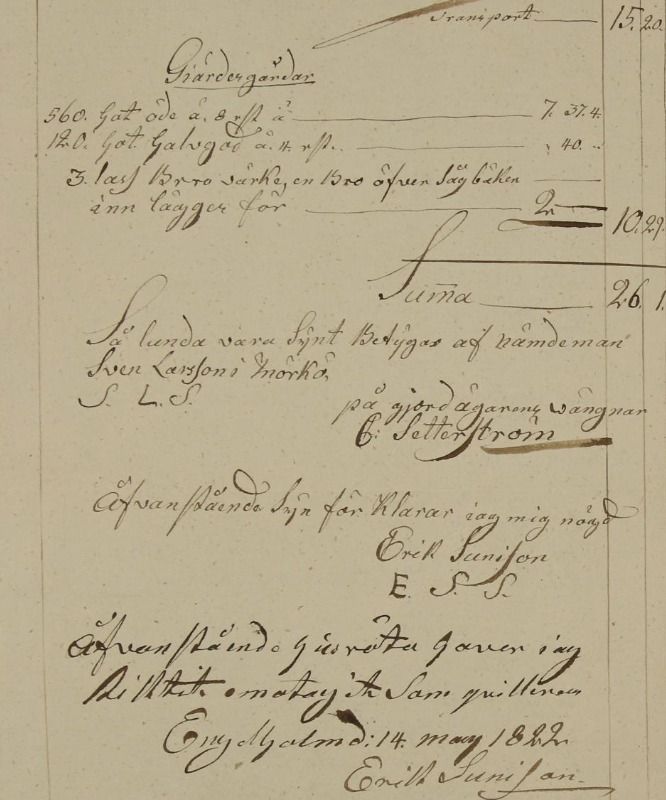 Transport 15. 20.
Giärdesgårdar
560. Got öde á. 8 rst ä 7. 37.4.
120. Got. Galvgod á. 4. rst. 40. ..
3. lass Brro värke, en Bro öfver Såg bäken
inn lägges för 2 10. 29.
Summa 26. 1.
Så lunda vara Synt Betygas af nämdeman
Sven Larsson i Mörkö,
S. L. S.
på gjord ägarens vängnar
C: Setterström
Åfvanstående Syn för Klarar iag mig nögd
Erik Sunisson
E. S. S.
Åfvanstående Husröta haver iag
Riktit emotagit Som qvitteras
Engholmd: 14. may 1822
Erik Sunisson